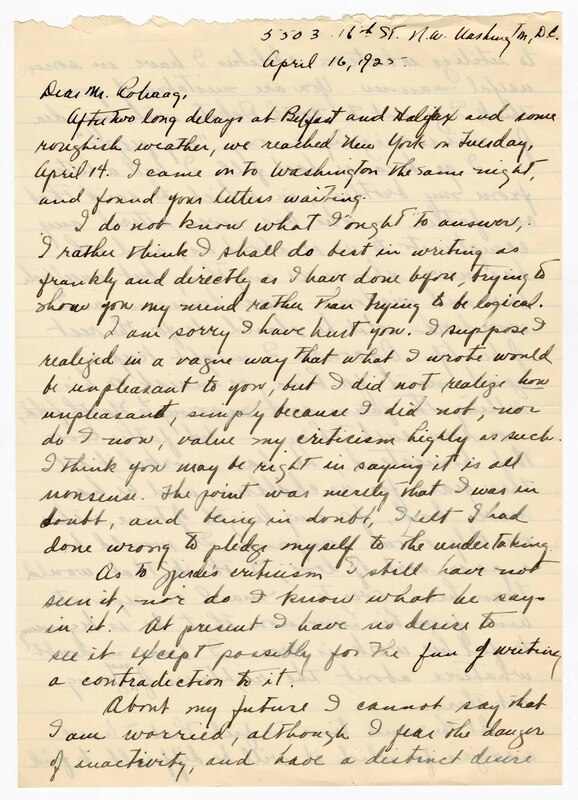 5503 16th St. N.W. Washington, D.C.
April 16, 1925
Dear Mr. Rohaag,
After two long delays at Belfast and Halifax and some
roughish weather, we reached New York on Tuesday,
April 14. I came on to Washington the same night,
and found your letters waiting.
I do not know what I ought to answer.
I rather think I shall do best in writing as
frankly and directly as I have done before, trying to
show you my mind rather than trying to be logical.
I am sorry I have hurt you. I suppose I
realized in a vague way that what I wrote would
be unpleasant to you, but I did not realize how
unpleasant, simply because I did not, nor
do I now, value my criticism highly as such.
I think you may be right in saying it is all
nonsense. The point was merely that I was in
doubt, and being in doubt, I felt I had
done wrong to pledge myself to the undertaking.
As to criticism I still have not
seen it, nor do I know what he says
in it. At present I have no desire to
see it except possibly for the fun of writing
a contradiction to it.
About my future I cannot say that
I am worried, although I fear the danger
of inactivity, and have a distinct desire